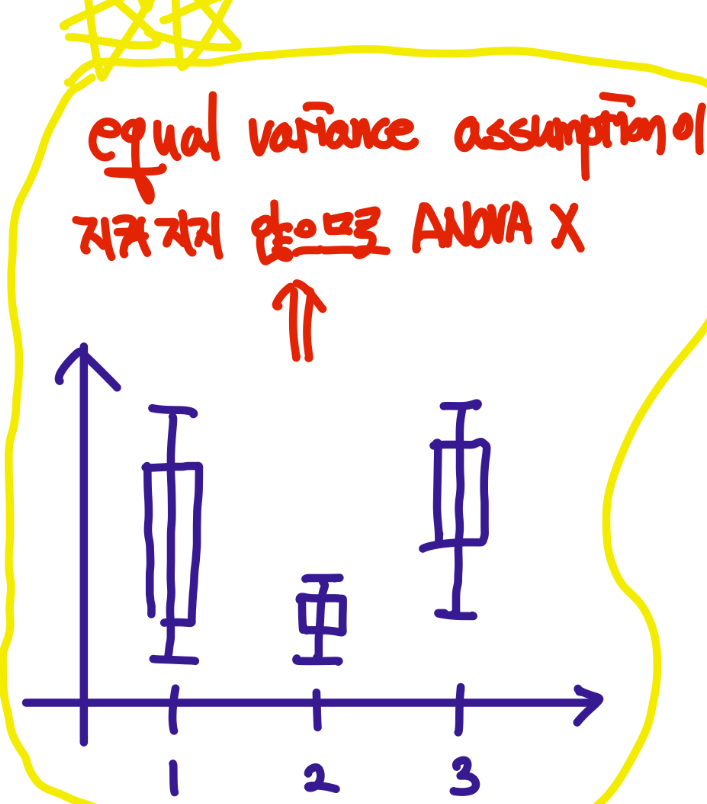 equal variance assumption이
지켜지지 않으므로 ANOVA X
1 2 3